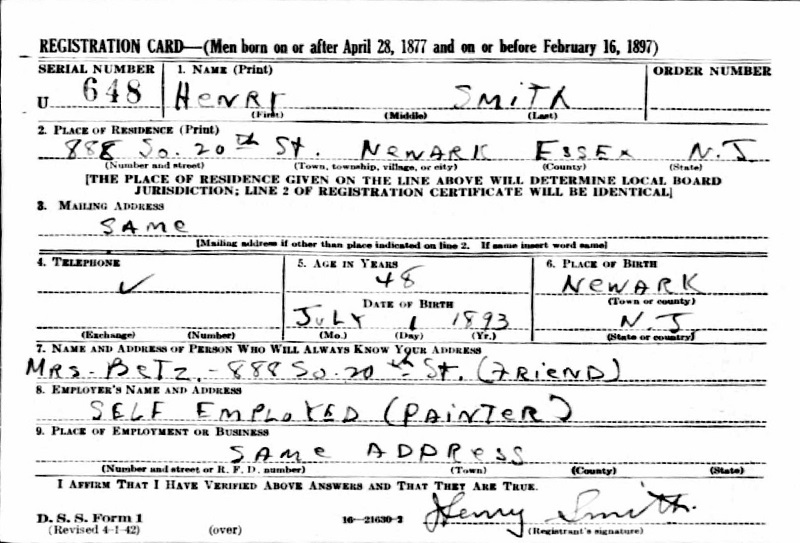 REGISTRATION CARD—(Men born on or after April 28, 1877 and on or before February 16, 1897)
SERIAL NUMBER 1. NAME (Print) ORDER NUMBER
U 648 HENRY SMITH
(First) (Middle) (Last)
2. PLACE OF RESIDENCE (Print)
888 So. 20th St. NEWARK ESSEX N.J
(Number and street) (Town, township, village, or city) (County) (State)
[THE PLACE OF RESIDENCE GIVEN ON THE LINE ABOVE WILL DETERMINE LOCAL BOARD
JURISDICTION; LINE 2 OF REGISTRATION CERTIFICATE WILL BE IDENTICAL]
3. MAILING ADDRESS
SAME
[Mailing address if other than place indicated on line 2. If same insert word same]
4. TELEPHONE 5. AGE IN YEARS 6. PLACE OF BIRTH
✓ 48 NEWARK
DATE OF BIRTH (Town or county)
JULY 1 1893 N.J
(Exchange) (Number) (Mo.) (Day) (Yr.) (State or country)
7. NAME AND ADDRESS OF PERSON WHO WILL ALWAYS KNOW YOUR ADDRESS
MRS. BETZ - 888 So. 20th St. (FRIEND)
8. EMPLOYER'S NAME AND ADDRESS
SELF EMPLOYED (PAINTER)
9. PLACE OF EMPLOYMENT OR BUSINESS
SAME ADDRESS
(Number and street or R. F. D. number) (Town) (County) (State)
I AFFIRM THAT I HAVE VERIFIED ABOVE ANSWERS AND THAT THEY ARE TRUE.
D. S. S. Form 1 Henry Smith
(Revised 4-1-42) (over) 16—21630-2 (Registrant's signature)